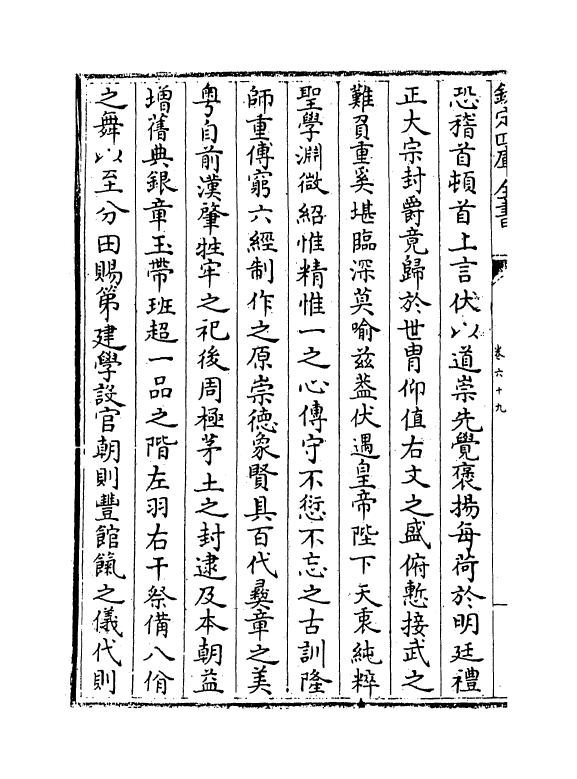 欽定四庫全書
卷六十九
恐稽首頓首上言伏以道崇先覺褒揚每荷於明廷禮
正大宗封爵竟歸於世胄仰值右文之盛俯慙接武之
難負重奚堪臨深莫喻兹葢伏遇皇帝陛下天衷純粹
聖學淵微紹惟精惟一之心傳守不愆不忘之古訓隆
師重傅窮六經制作之原崇德象賢具百代彛章之美
粤自前漢肇牲牢之祀後周極茅土之封逮及本朝益
增舊典銀章玉帶班超一品之階左羽右干祭備八佾
之舞以至分田賜第建學設官朝則豐館餼之儀代則